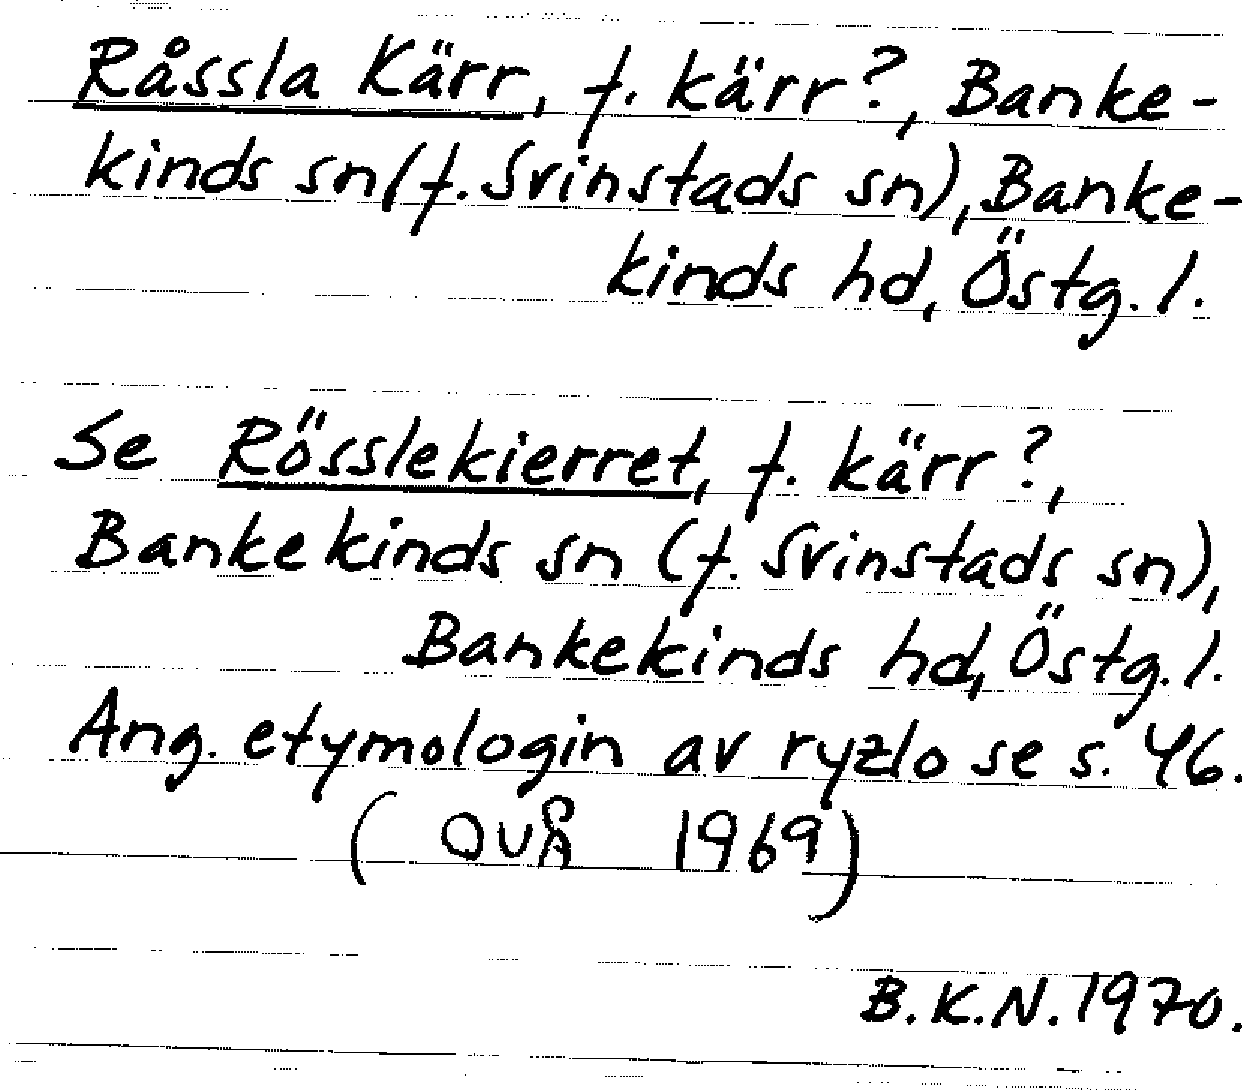 Råssla Kärr, f. kärr?, Banke-
kinds sn (f. Svinstads sn), Banke-
kinds hd, Östg. l.
Se Rösslekierret, f. kärr?,
Bankekinds sn (f. Svinstads sn),
Bankekinds hd, Östg. l.
Ang. etymologin av ryzlo se s. 46.
( OUÅ 1969)
B.K.N. 1970.